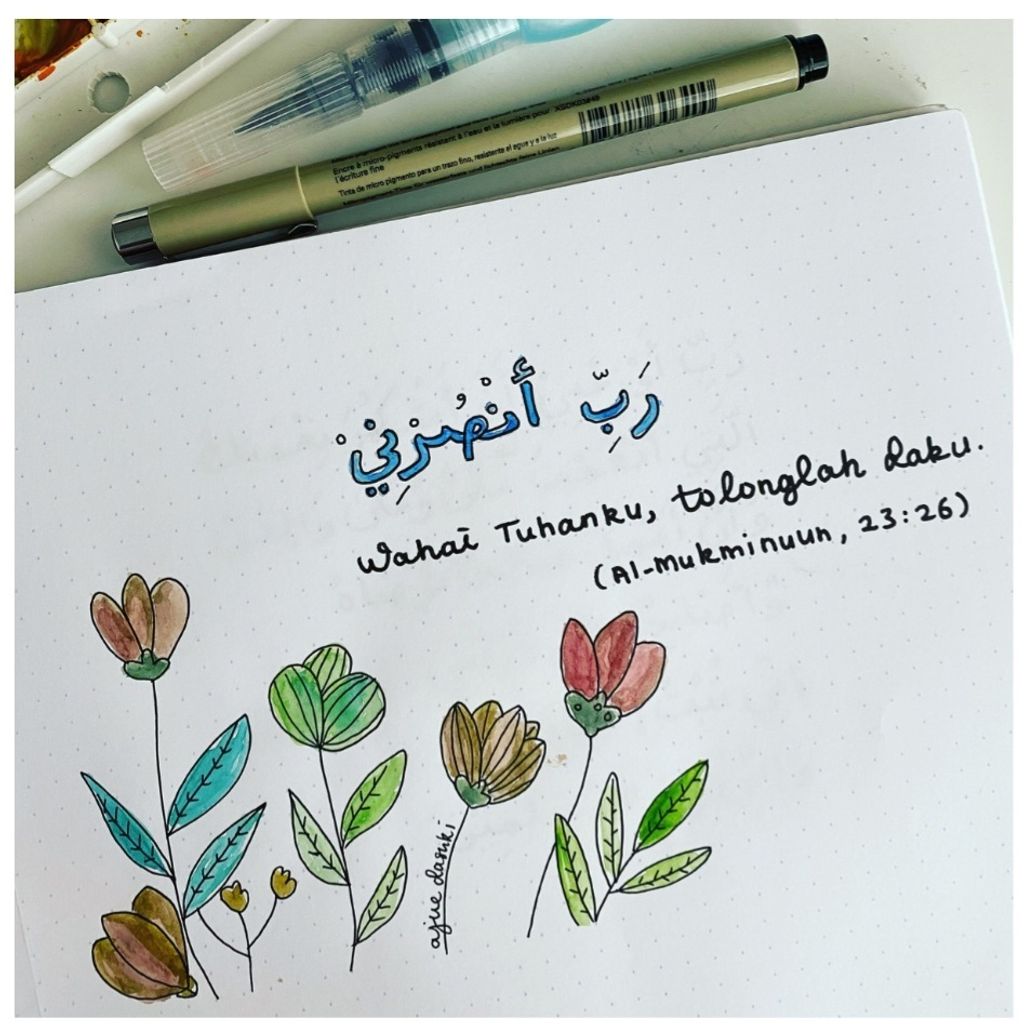 XSDK03#49
Encre à micro-pigments résistent à l'eau et la lumière pour
l'écriture fine
Tinta de micro pigmento para un trazo fino, resistente el agua y a la luz
رَبِّ أَنْصُرْنِيْ
Wahai Tuhanku, tolonglah daku.
(Al-Mukminuun, 23:26)
ajue dasuki